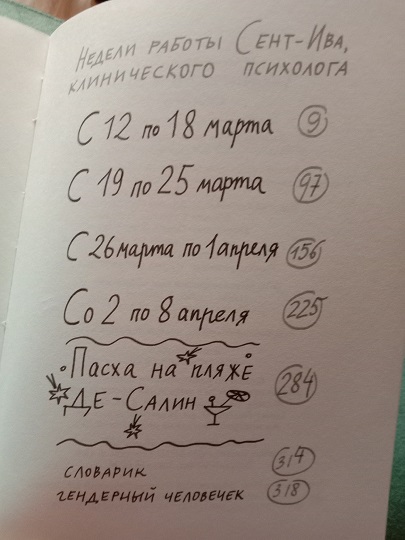 Недели работы Сент-Ива,
клинического психолога
С 12 по 18 марта 9
С 19 по 25 марта 97
С 26 марта по 1 апреля 156
Со 2 по 8 апреля 225
Пасха на пляже
Де-Салин 284
словарик 314
гендерный человечек 318